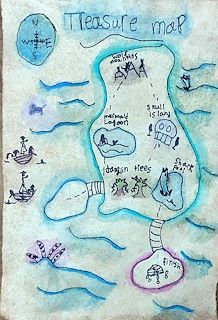 Treasure map
N
W E
S
mountains
mermaid
lagoon
Skull
island
dragon trees
Shark
finish